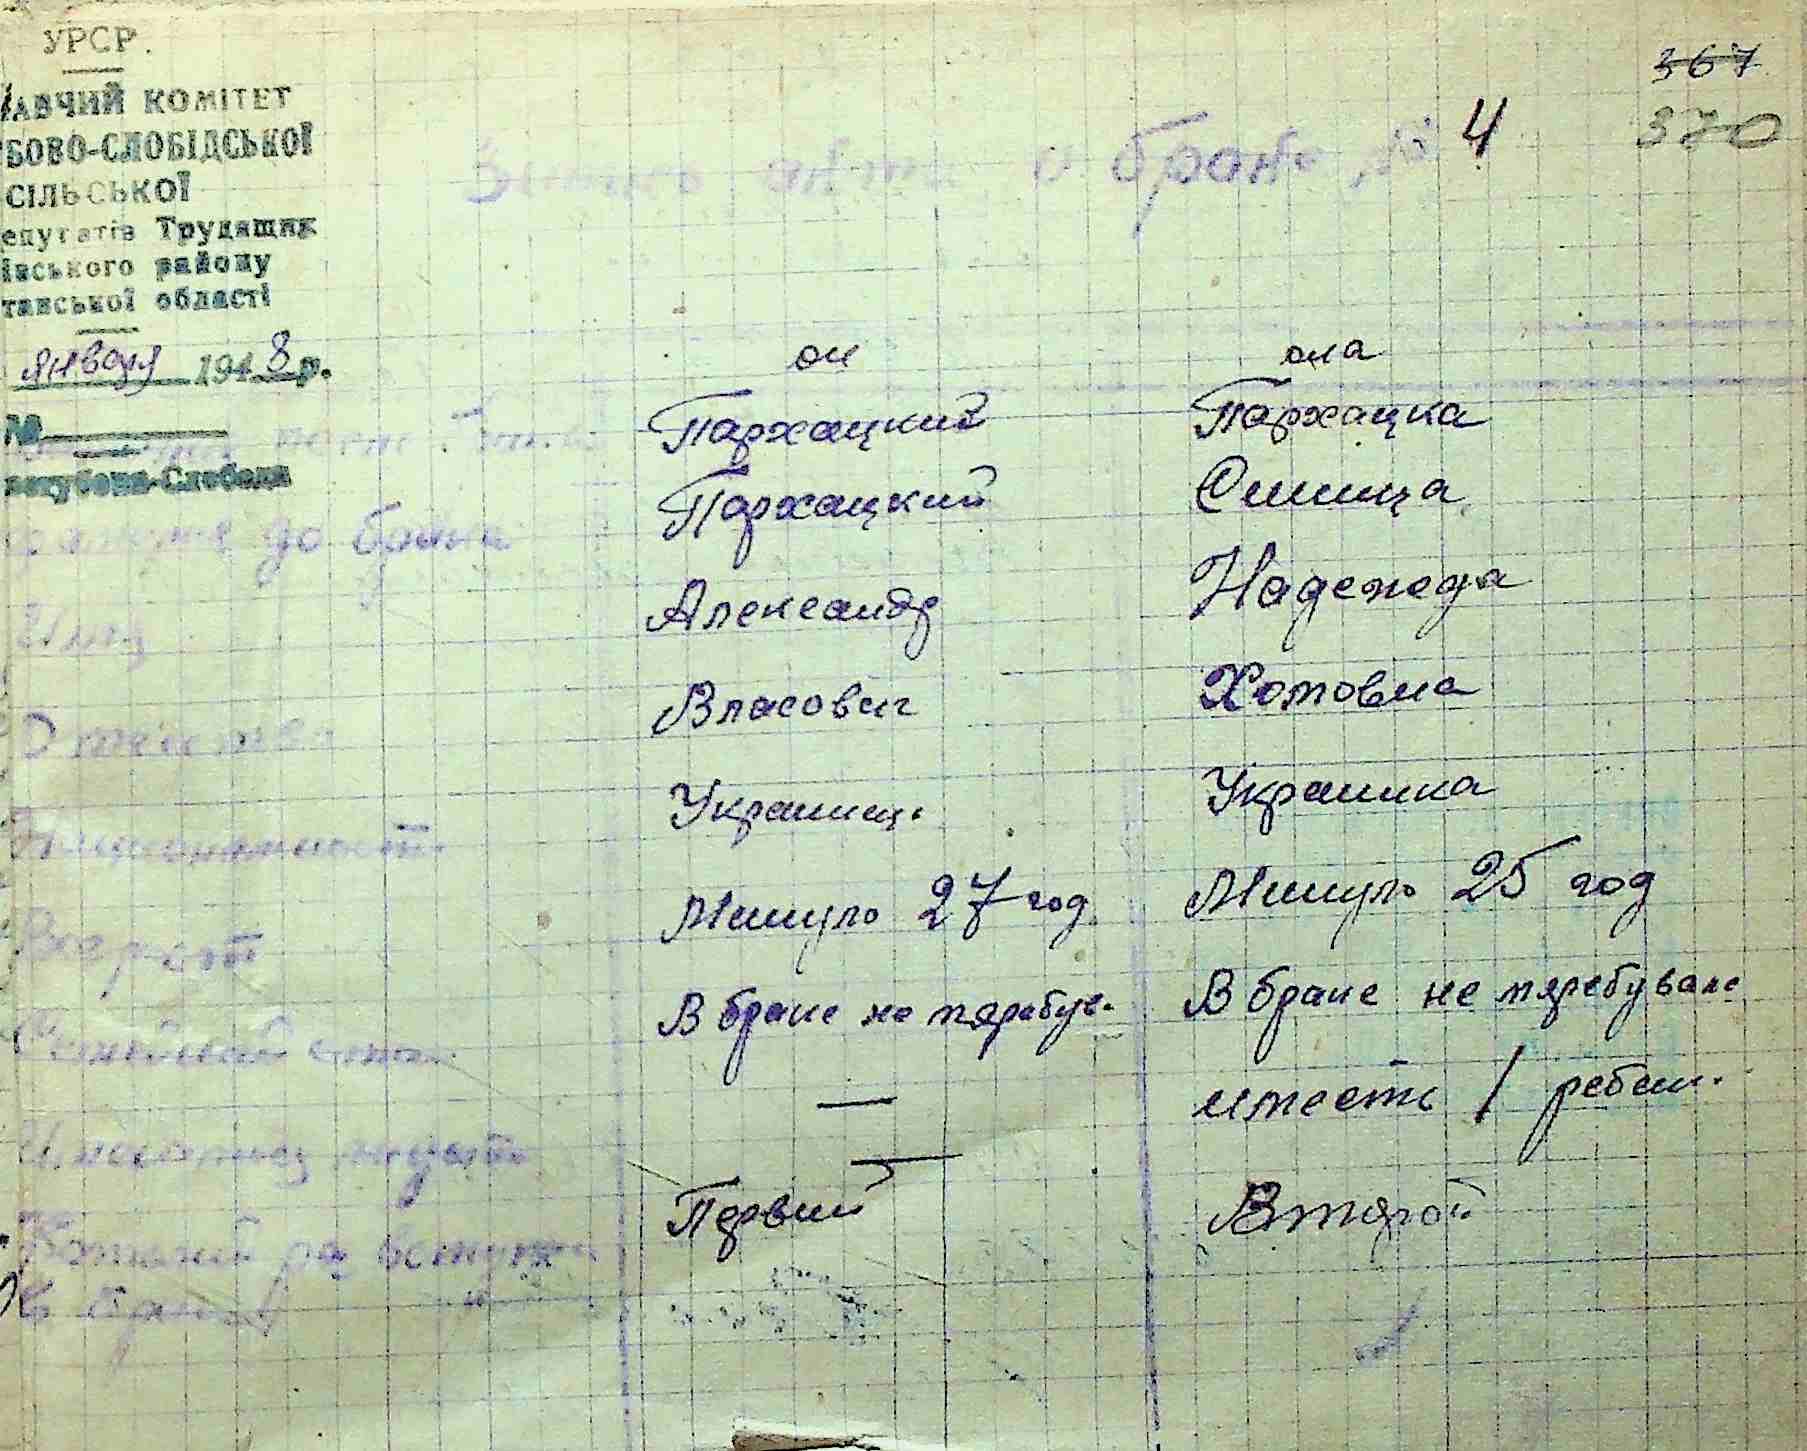 УРСР.
АВЧИЙ КОМІТЕТ
БОВО-СЛОБІДСЬКОЇ
СІЛЬСЬКОЇ
епутатів Трудящих
івського району
танської області
января 1948 р.
№
Слобода
367
370
о браке № 4
он она
Пархацкий Пархацка
до брака Пархацкий Синица
Имя Александр Надежда
Власович Хотовна
Украинец. Украинка
Минуло 27 год Минуло 25 год
В браке не пяребув. В браке не пяребувале
— имееть 1 ребен.
Первий Второй